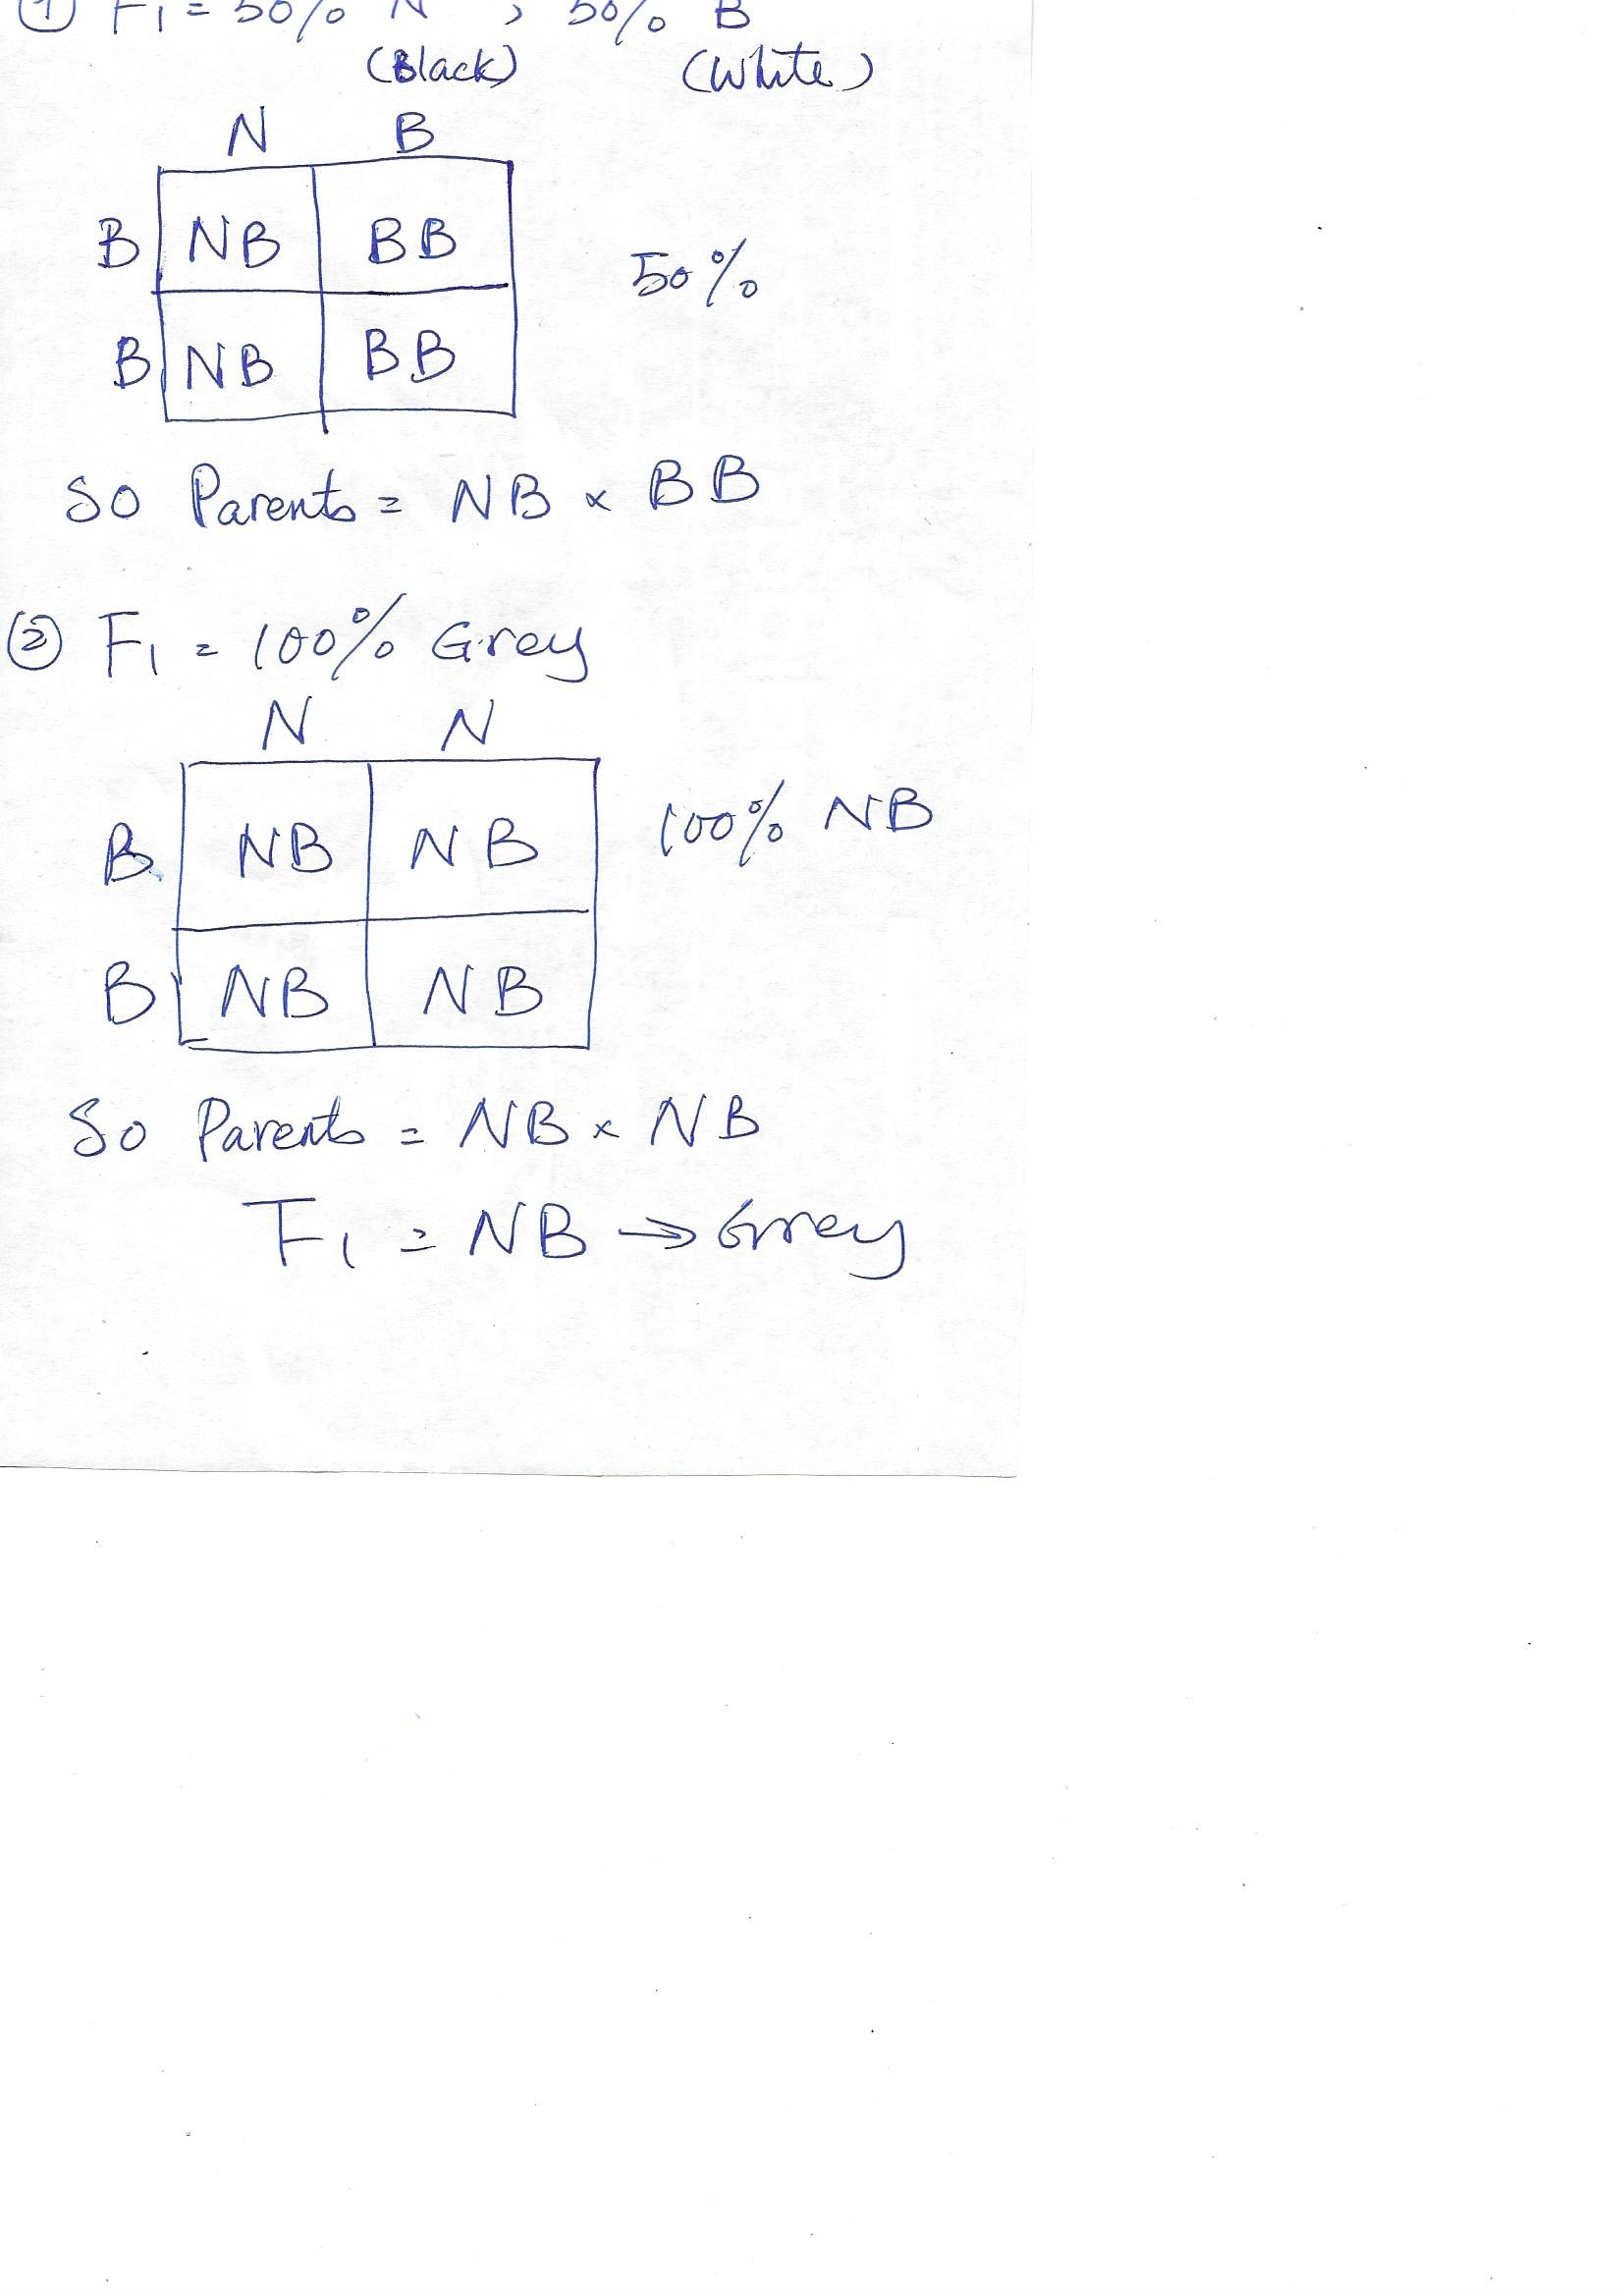 ① F1 = 50% N , 50% B
(Black) (White)
N B
B NB BB
50%
B NB BB
So Parents = NB x BB
② F1 = 100% Grey
N N
100% NB
B NB NB
B NB NB
So Parents = NB x NB
F1 = NB → Grey